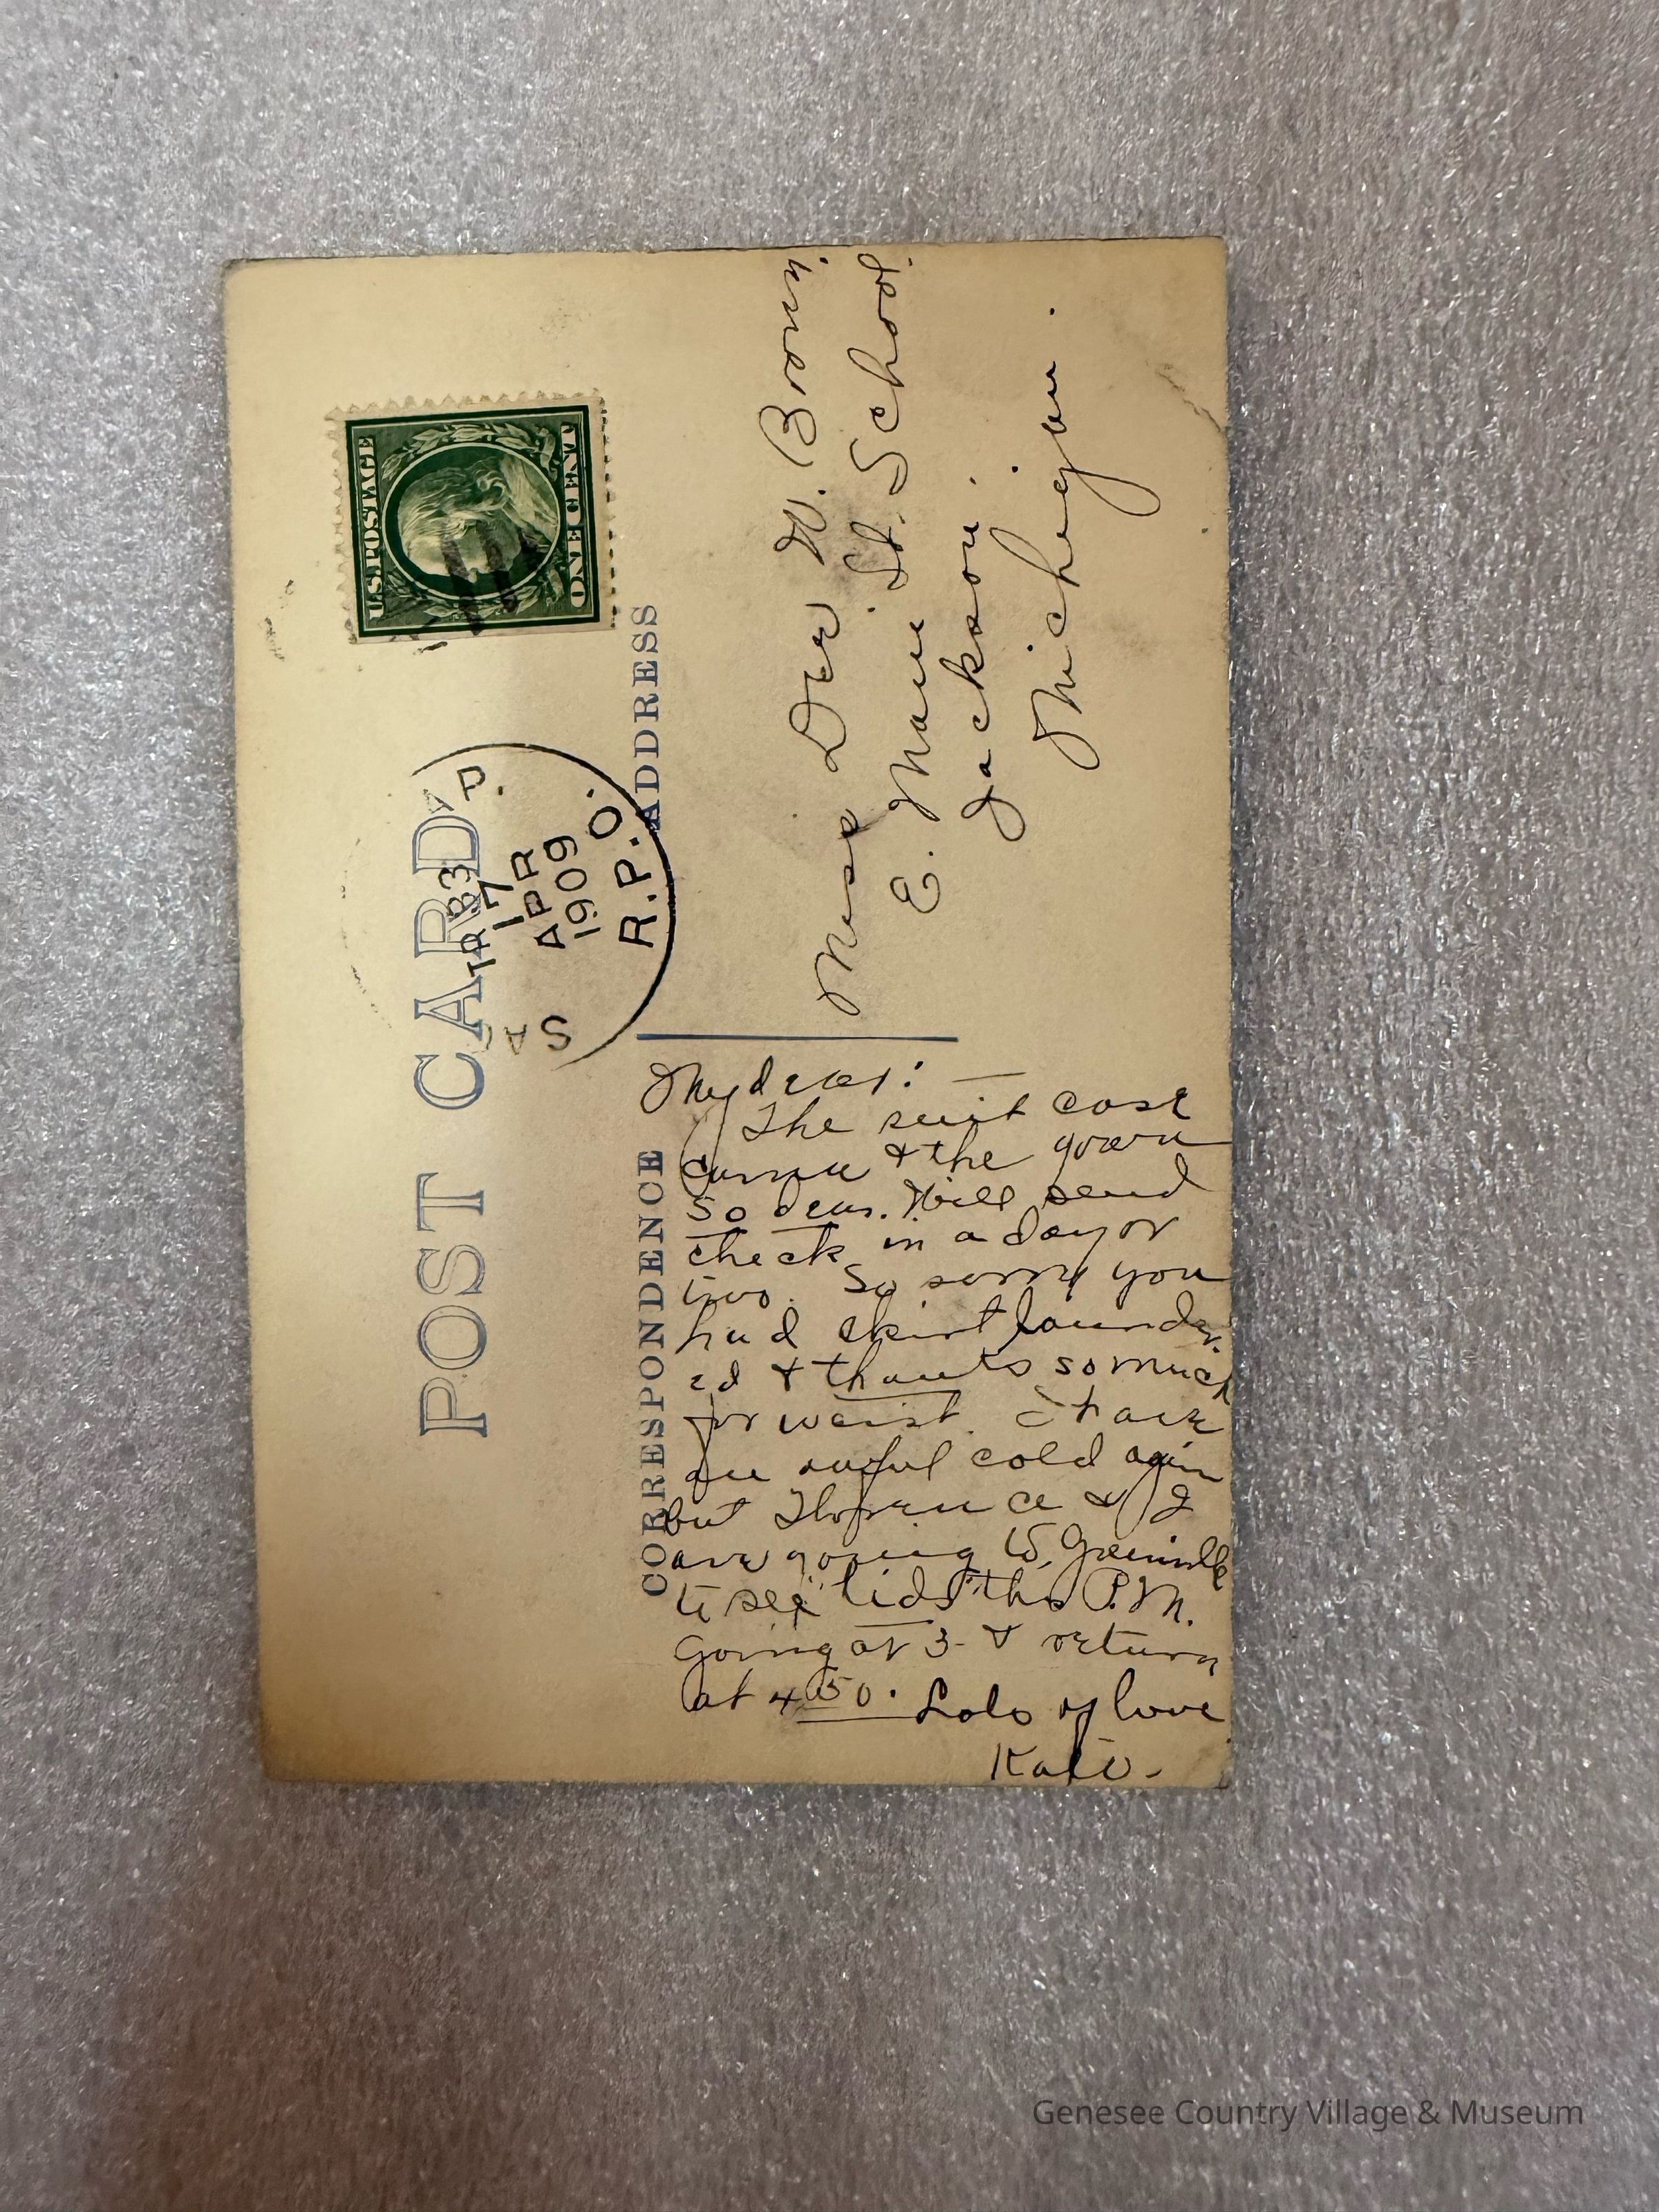 POST CARD
U.S. POSTAGE
ONE CENT
SA
P.
TR 83
17
APR
1909
R.P.O.
CORRESPONDENCE
ADDRESS
My dear: —
The suit case
came & the gown
so dear. Will send
check in a day or
two. So sorry you
had skirt launder
ed & thanks so much
for waist. I have
an awful cold again
but Florence & I
are going to Greenville
to see "Lids" this P.M.
Going at 3- & return
at 4 50. Lots of love
Kate-
Miss W. Brown.
E. Main St. School.
Jackson.
Michigan.
Genesee Country Village & Museum